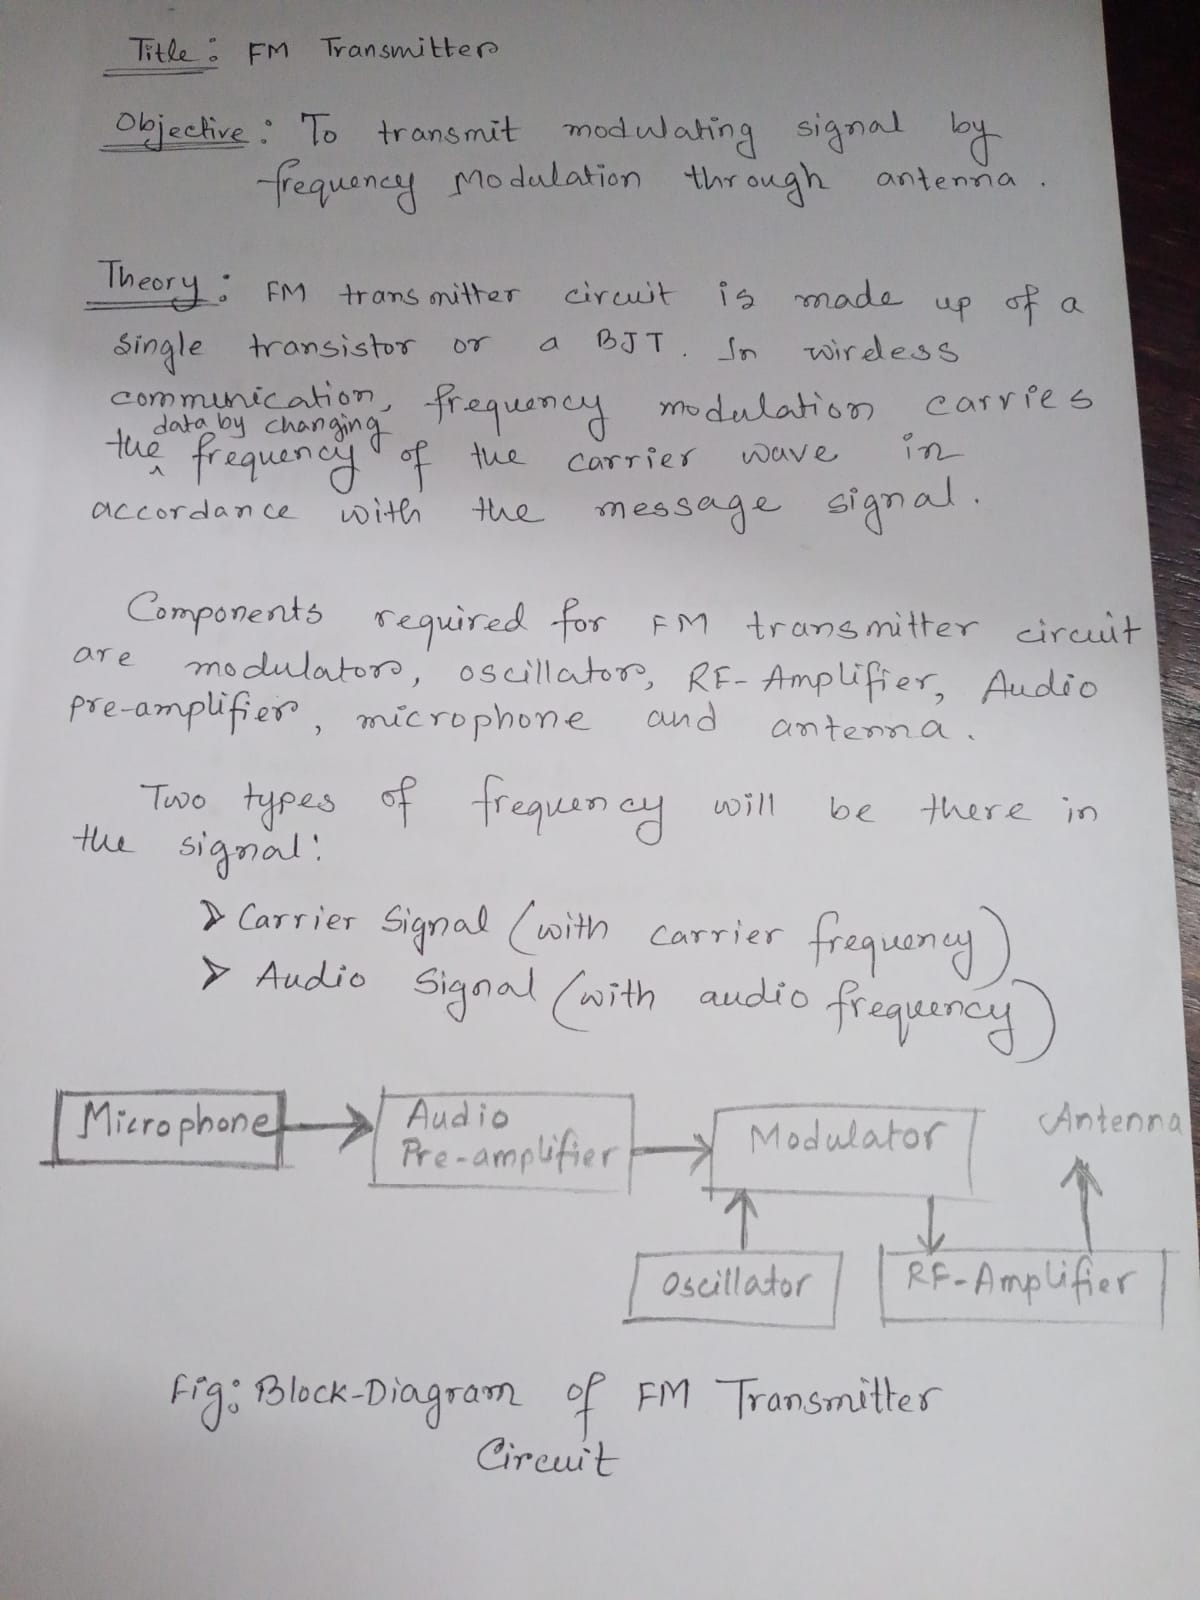 Title: FM Transmitter
Objective: To transmit modulating signal by
frequency Modulation through antenna.
Theory: FM transmitter circuit is made up of a
single transistor or a BJT. In wireless
communication, frequency modulation carries
data by changing
the ^ frequency of the carrier wave in
accordance with the message signal.
Components required for FM transmitter circuit
are modulator, oscillator, RF-Amplifier, Audio
pre-amplifier, microphone and antenna.
Two types of frequency will be there in
the signal:
➢ Carrier Signal (with carrier frequency)
➢ Audio Signal (with audio frequency)
Microphone
Audio
Pre-amplifier
Modulator
Antenna
Oscillator
RF-Amplifier
Fig: Block-Diagram of FM Transmitter
Circuit